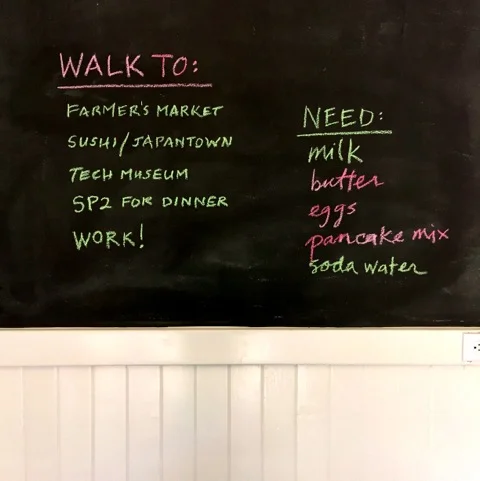 WALK TO:
FARMER'S MARKET
SUSHI/JAPANTOWN
TECH MUSEUM
SP2 FOR DINNER
WORK!
NEED:
milk
butter
eggs
pancake mix
soda water